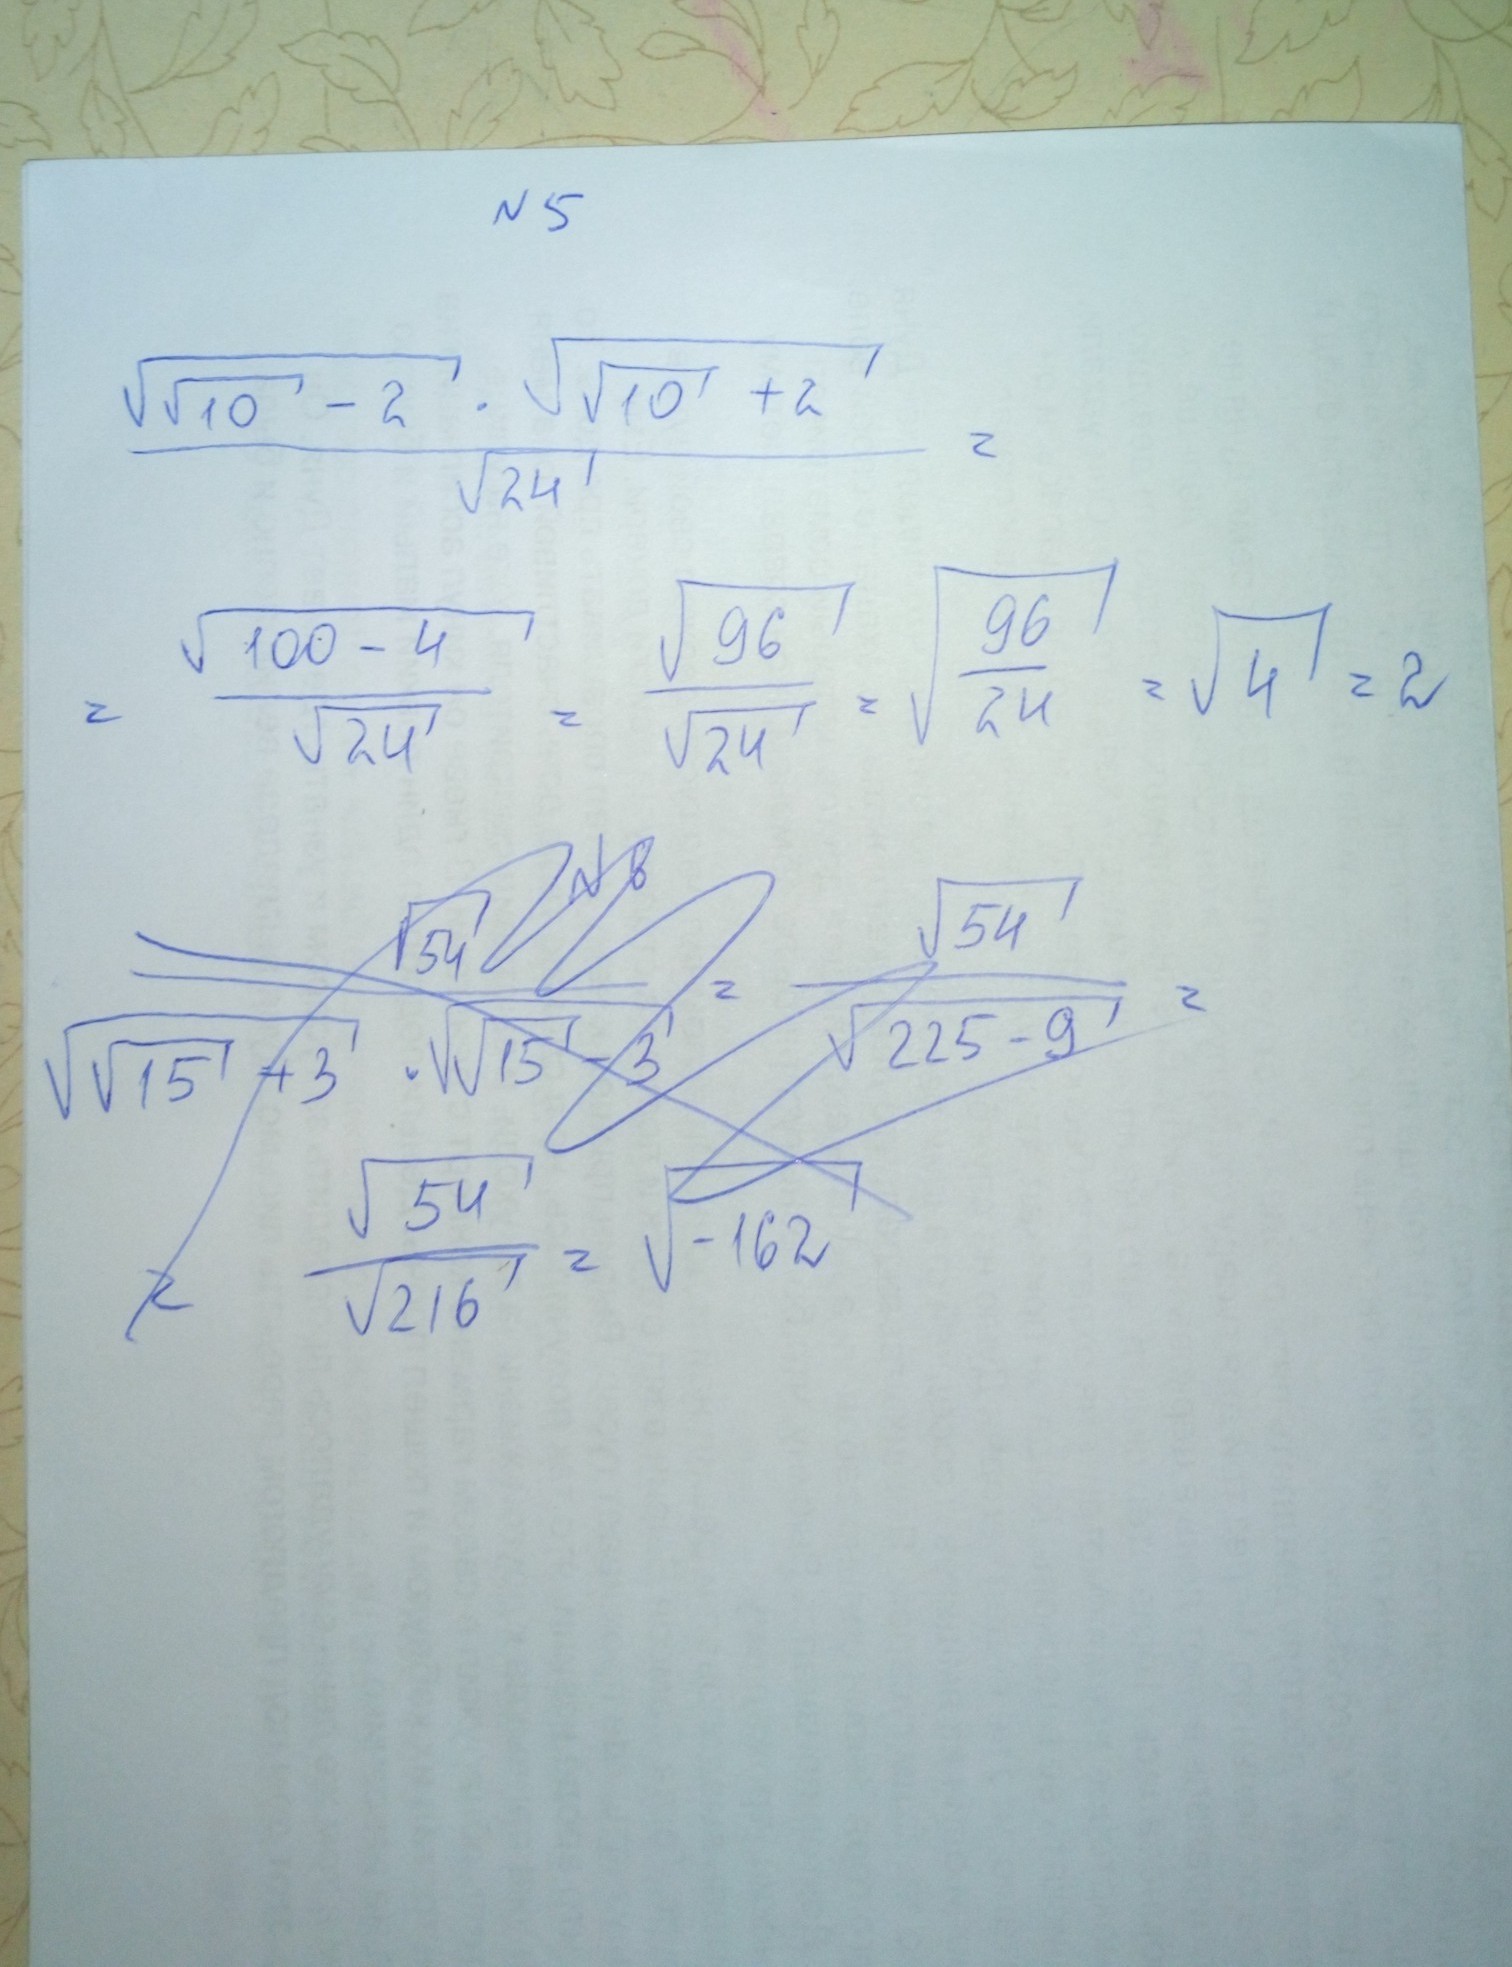 N5
√(√10 - 2) · √(√10 + 2) / √24 =
= √(100 - 4) / √24 = √96 / √24 = √(96/24) = √4 = 2
N6
√54 / (√(√15 + 3) · √(√15 - 3)) = √54 / √(225 - 9) =
= √54 / √216 = √-162